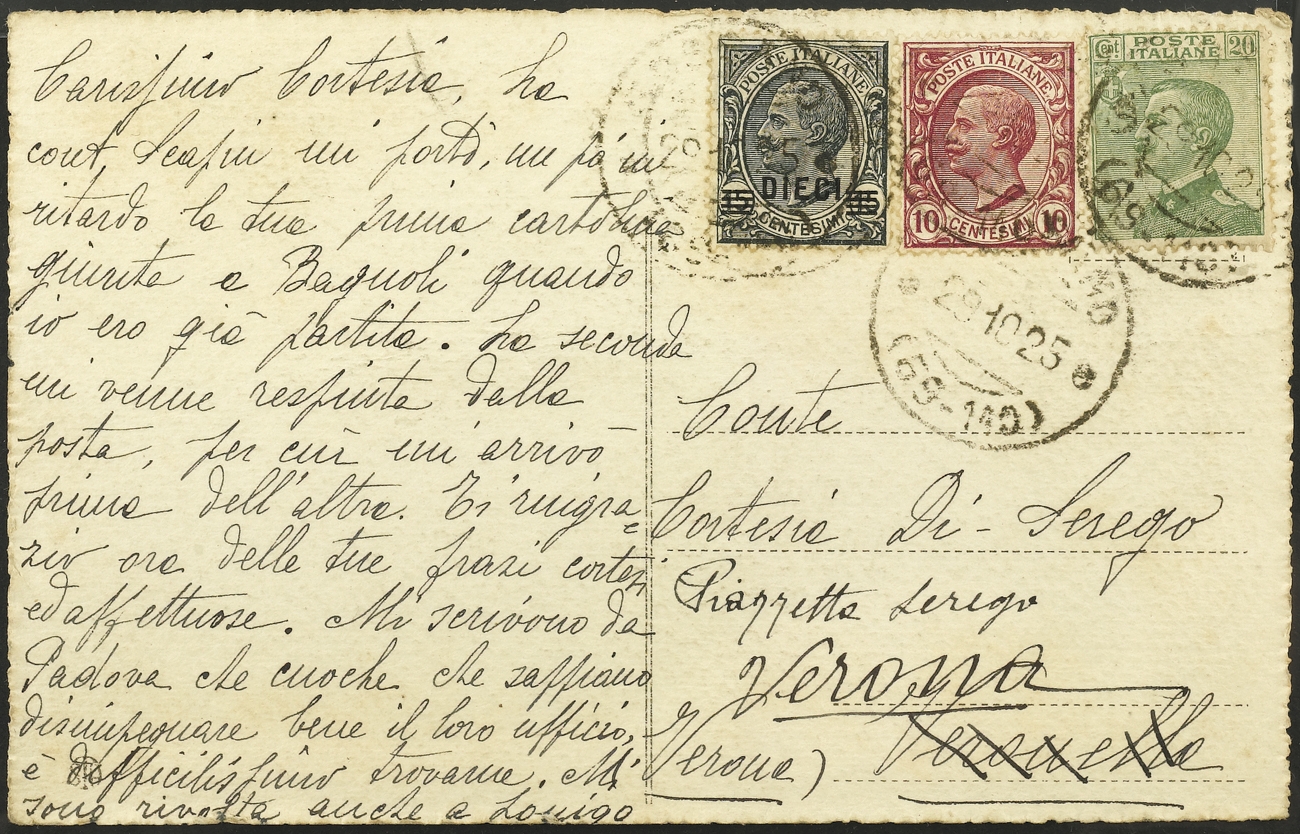 Carissimo Cortesia, ha
cont. Scapin mi portò, un pò in
ritardo la tua prima cartolina
giunta a Bagnoli quando
io ero già partita. La seconda
mi venne respinta dalla
posta, per cui mi arrivò
prima dell'altra. Ti ringra=
zio ora delle tue frasi cortesi
ed affettuose. Mi scrivono da
Padova che cuoche che sappiano
disimpegnare bene il loro ufficio,
è difficilissimo trovarne. Mi
sono rivolta anche a Lonigo
POSTE ITALIANE
15 DIECI 15
CENTESIMI
POSTE ITALIANE
10 CENTESIMI 10
Cent. POSTE ITALIANE 20
29 10 25
(69-140)
Conte
Cortesia Di-Serego
Piazzetta Serego
Verona
(Verona) Veronella